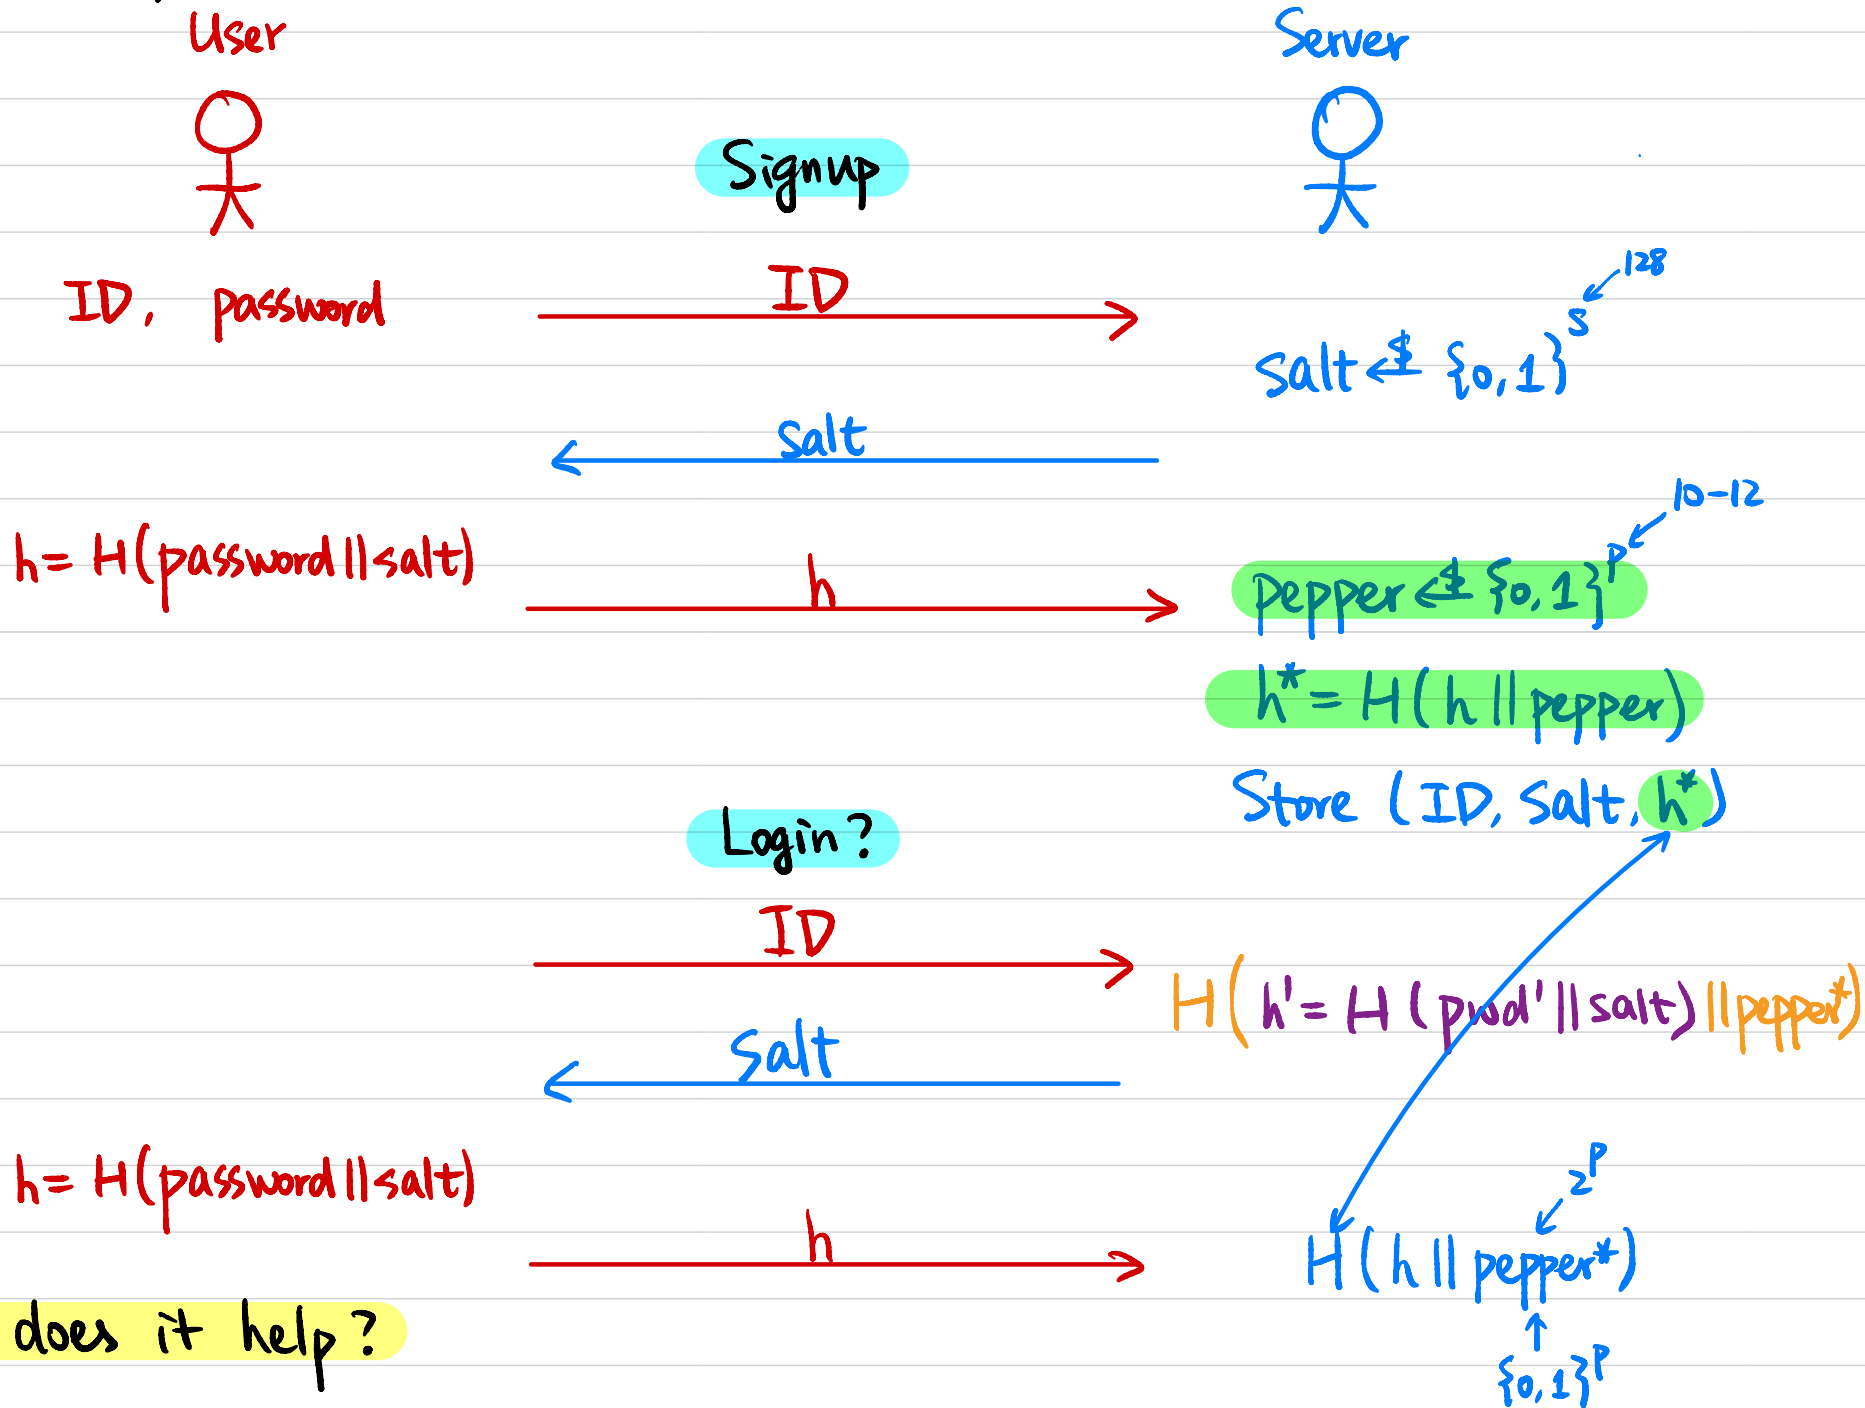 User Server
Signup
ID, password ID 128
salt ←$ {0,1}^s
salt
10-12
h = H(password||salt) h pepper ←$ {0,1}^p
h* = H(h||pepper)
Store (ID, Salt, h*)
Login?
ID
H(h' = H(pwd'||salt)||pepper*)
Salt
h = H(password||salt) 2^p
h H(h||pepper*)
does it help?
{0,1}^p